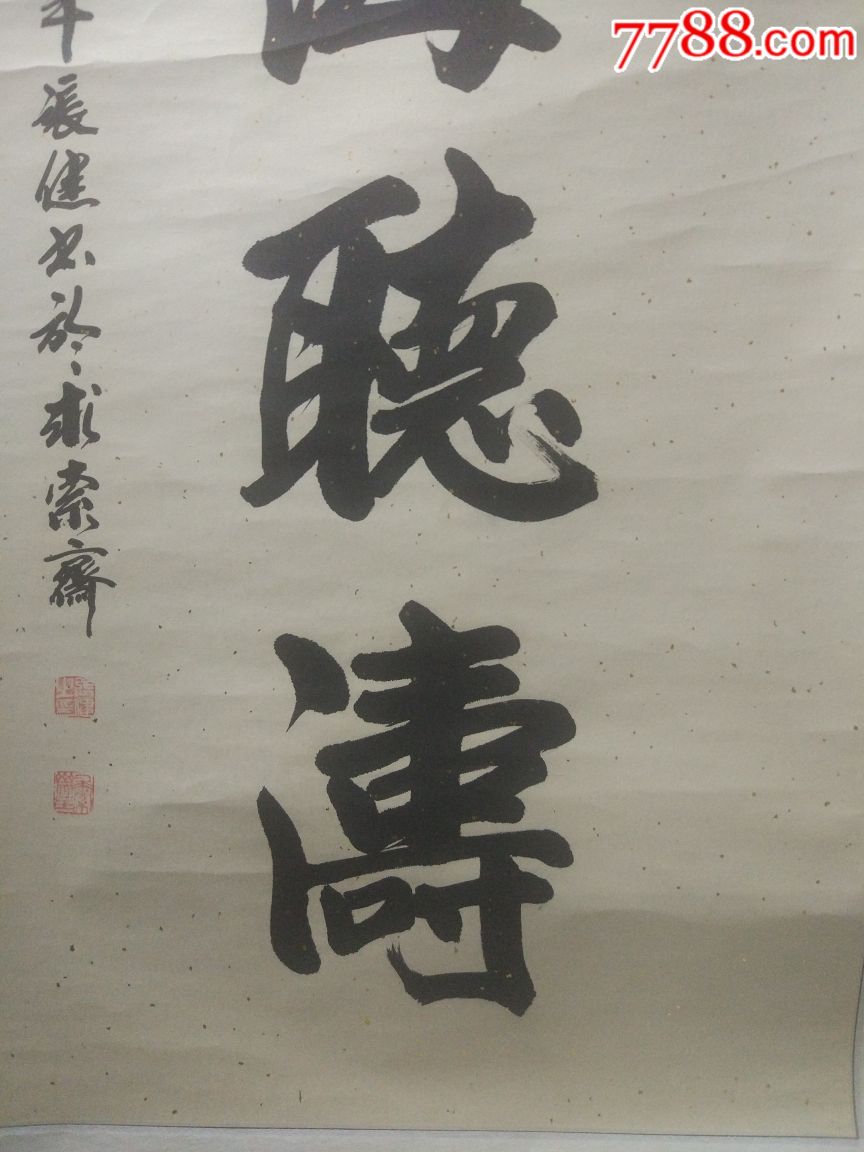 7788.com
海聽濤
年張健書於求索齋